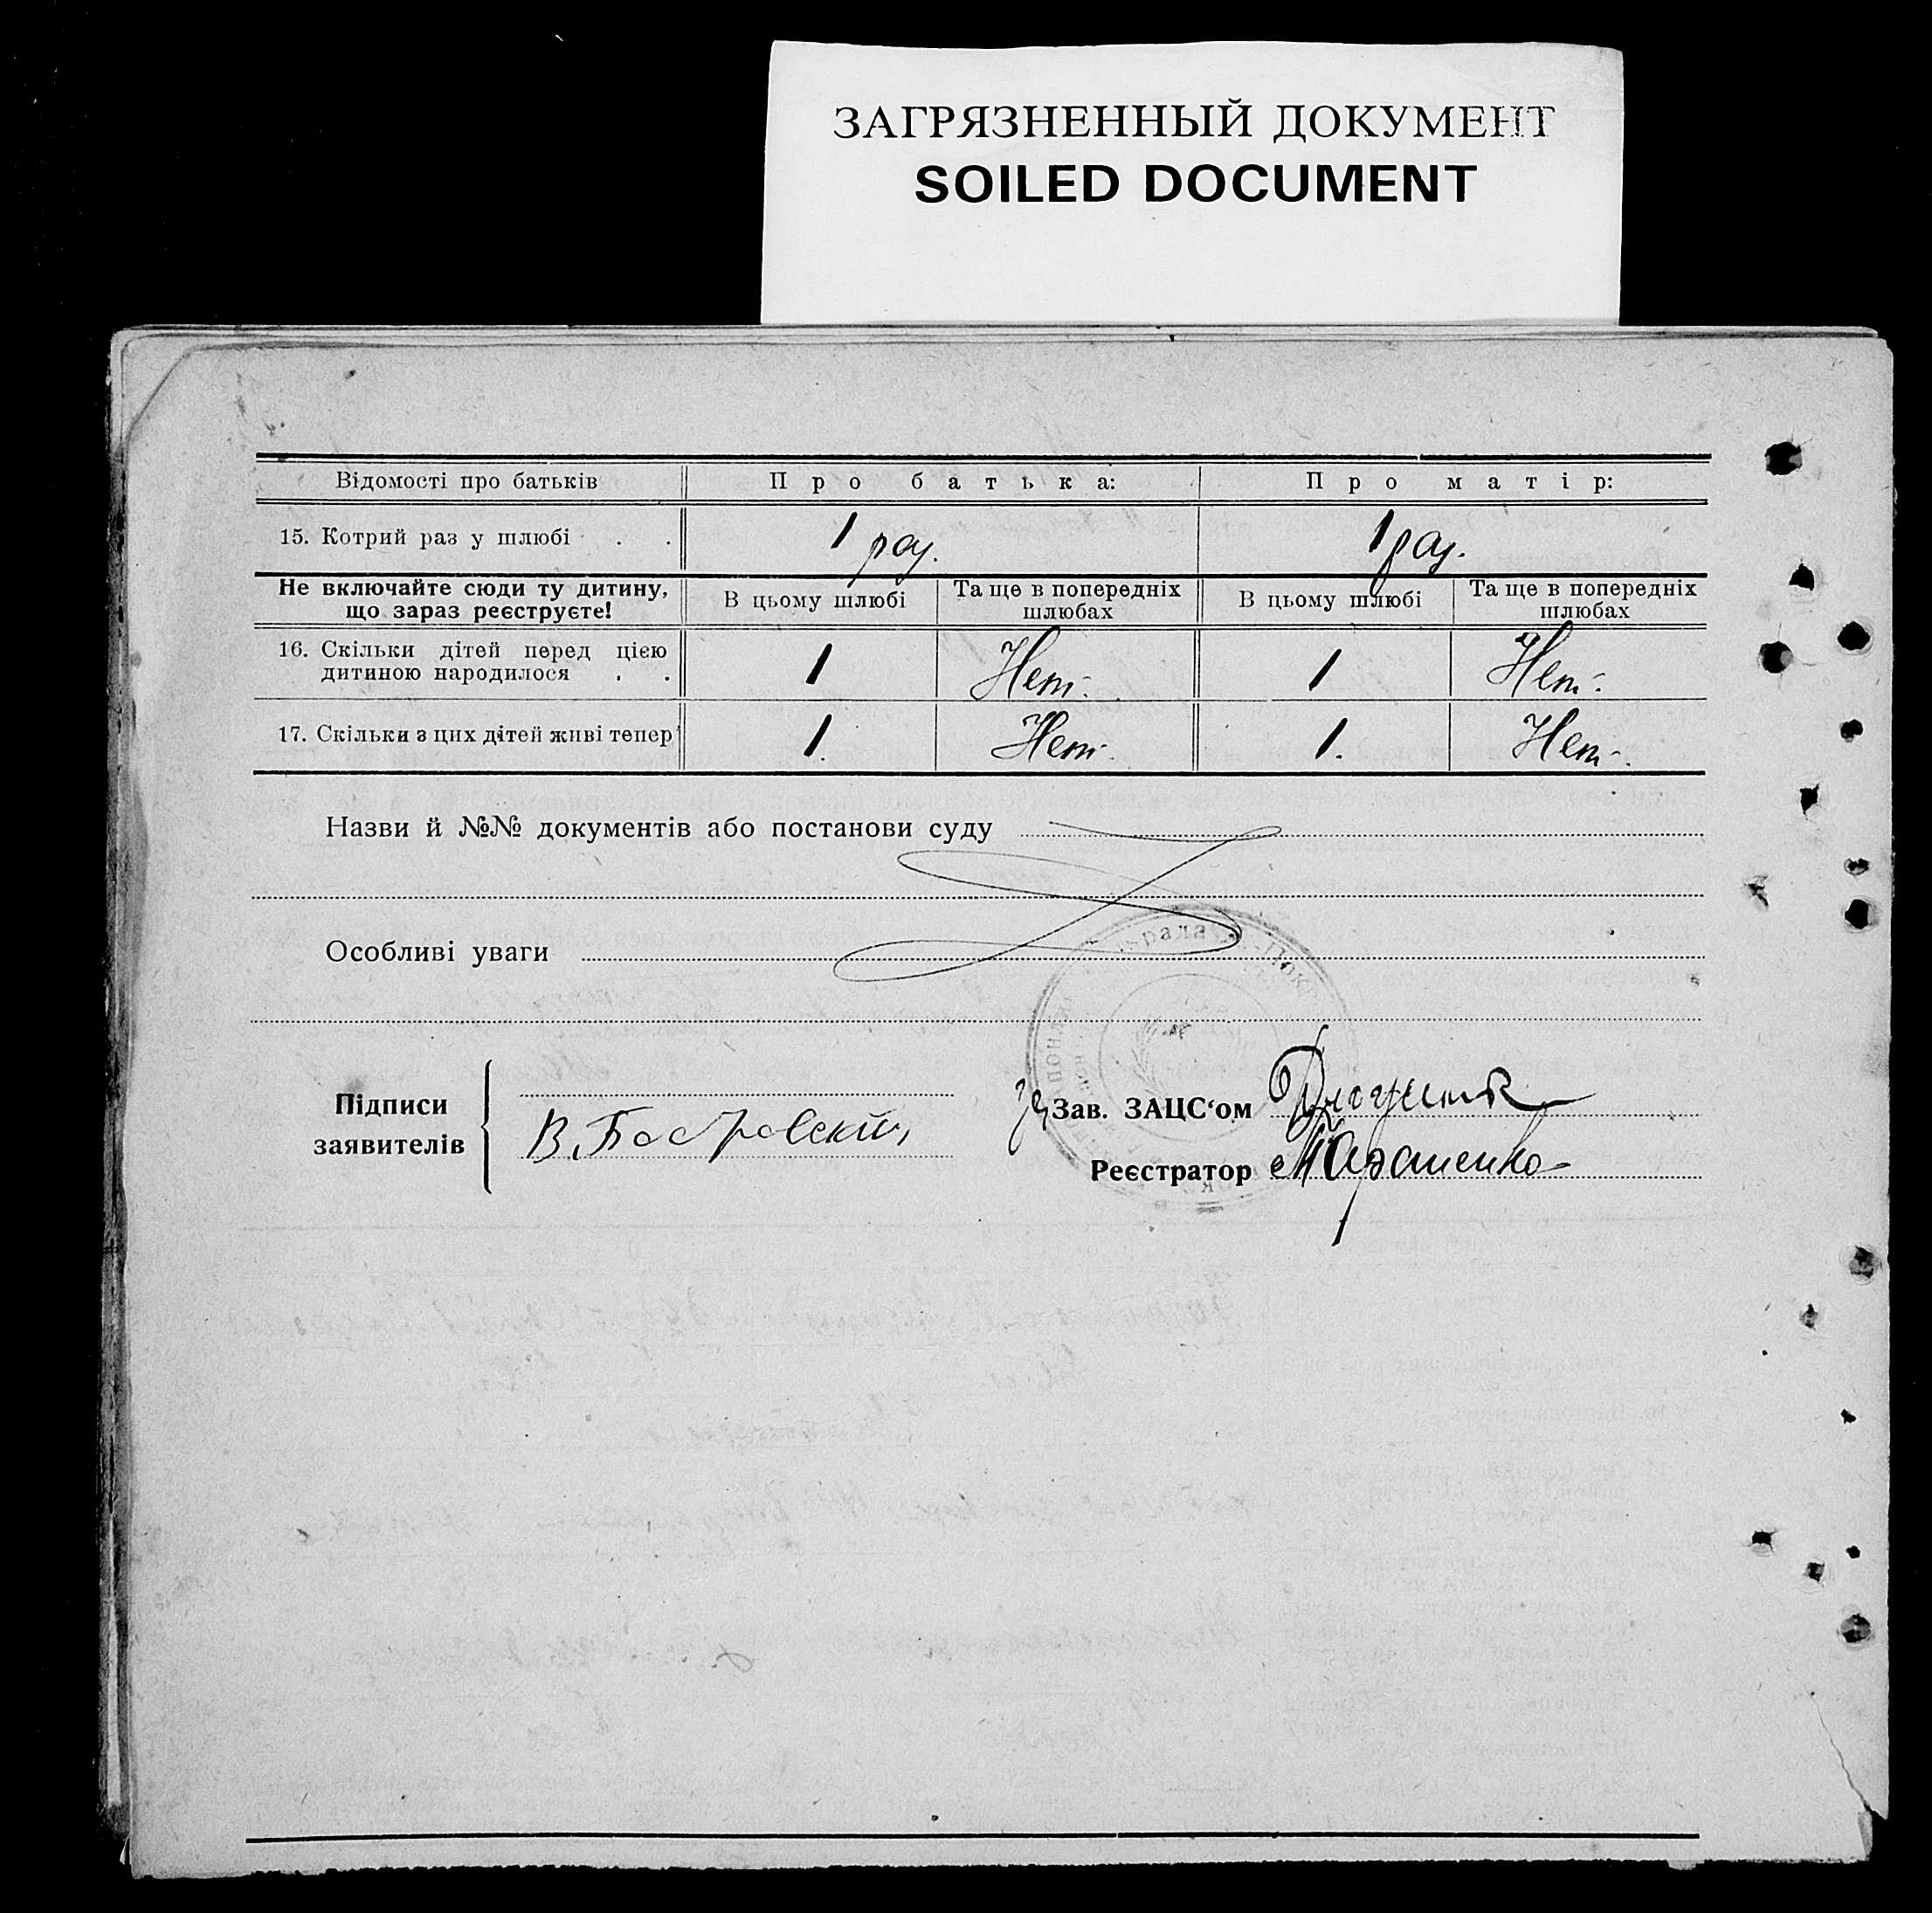 ЗАГРЯЗНЕННЫЙ ДОКУМЕНТ
SOILED DOCUMENT
Відомості про батьків Про батька: Про матір:
15. Котрий раз у шлюбі . . 1 раз. 1 раз.
Не включайте сюди ту дитину, що зараз реєструєте! В цьому шлюбі Та ще в попередніх шлюбах В цьому шлюбі Та ще в попередніх шлюбах
16. Скільки дітей перед цією
дитиною народилося . . 1 Нет. 1 Нет.
17. Скільки з цих дітей живі тепер 1. Нет. 1. Нет.
Назви й №№ документів або постанови суду
Особливі уваги
Підписи
заявителів
В.
За Зав. ЗАЦС‘ом
Реєстратор